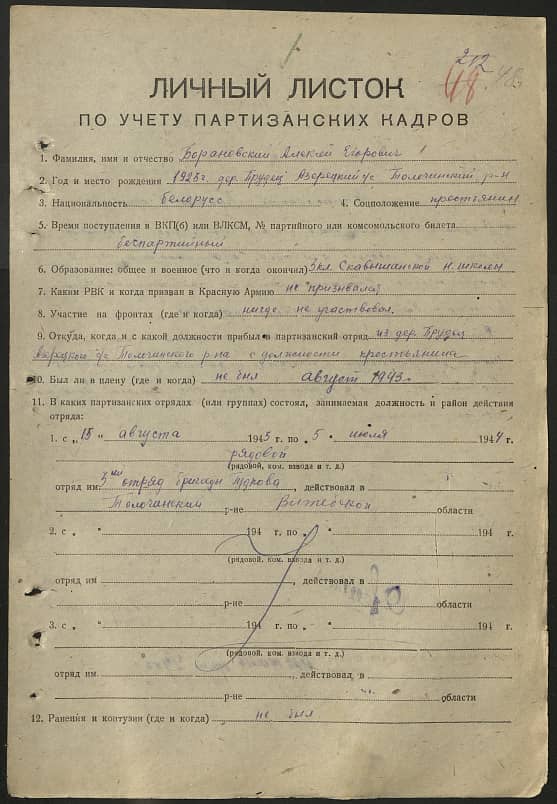 212
48
ЛИЧНЫЙ ЛИСТОК
ПО УЧЕТУ ПАРТИЗАНСКИХ КАДРОВ
1. Фамилия, имя и отчество Борановский Алексей Егорович
2. Год и место рождения 1925г. дер. Прудец Азорецкий с/с Толочинский р-н
3. Национальность белорусс 4. Соцположение крестьянин
5. Время поступления в ВКП(б) или ВЛКСМ, № партийного или комсомольского билета
беспартийный
6. Образование: общее и военное (что и когда окончил) 3 кл. школы
7. Каким РВК и когда призван в Красную Армию не призвался
8. Участие на фронтах (где и когда) нигде не участвовал.
9. Откуда, когда и с какой должности прибыл в партизанский отряд из дер. Прудец
с/с Толочинского р-на с должности крестьянина
10. Был ли в плену (где и когда) не был август 1943.
11. В каких партизанских отрядах (или группах) состоял, занимаемая должность и район действия
отряда:
1. с „15 „ августа 1943 г. по „ 5 „ июля 1944 г.
рядовой
(рядовой, ком. взвода и т. д.)
отряд им. отряд бригады Гудкова, действовал в
Толочинский р-не Витебской области
2. с „ “ 194 г. по „ “ 194 г.
(рядовой, ком. взвода и т. д.)
отряд им , действовал в
р-не области
3. с „ “ 194 г. по „ “ 194 г.
(рядовой, ком. взвода и т. д.)
отряд им. , действовал в
р-не области
12. Ранения и контузии (где и когда) не был